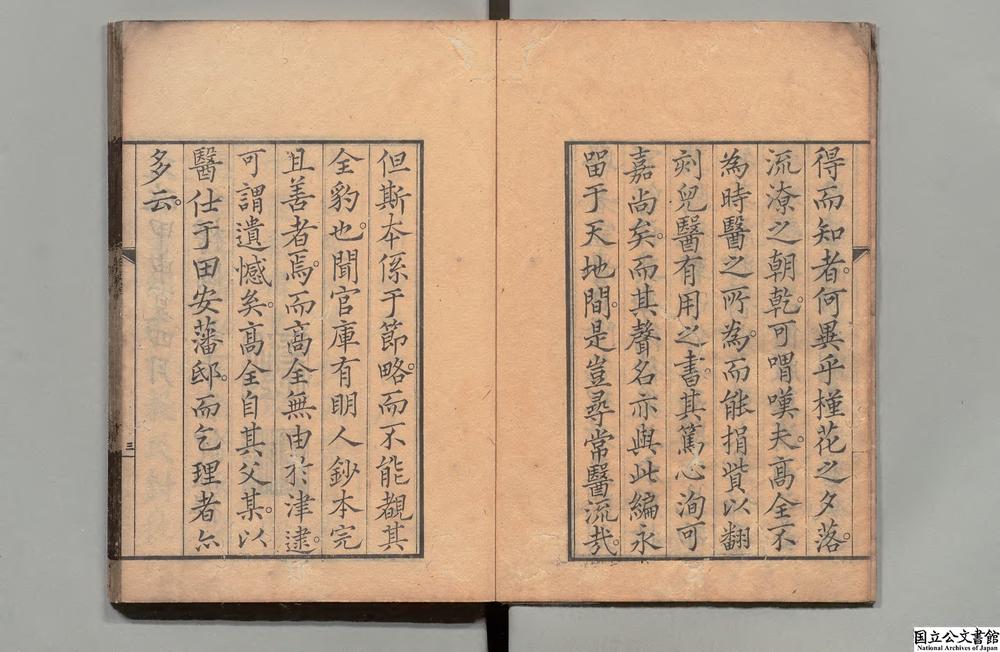 得而知者。何異乎槿花之夕落。
流潦之朝乾。可喟嘆夫。高全不
為時醫之所為。而能捐貲以翻
刻兒醫有用之書。其篤心洵可
嘉尚矣。而其聲名亦與此編永
留于天地間。是豈尋常醫流哉。
但斯本係于節略。而不能覩其
全豹也。聞官庫有明人鈔本完
且善者焉。而高全無由於津逮。
可謂遺憾矣。高全自其父某。以
醫仕于田安藩邸。而乞理者尓
多云。
三
国立公文書館
National Archives of Japan